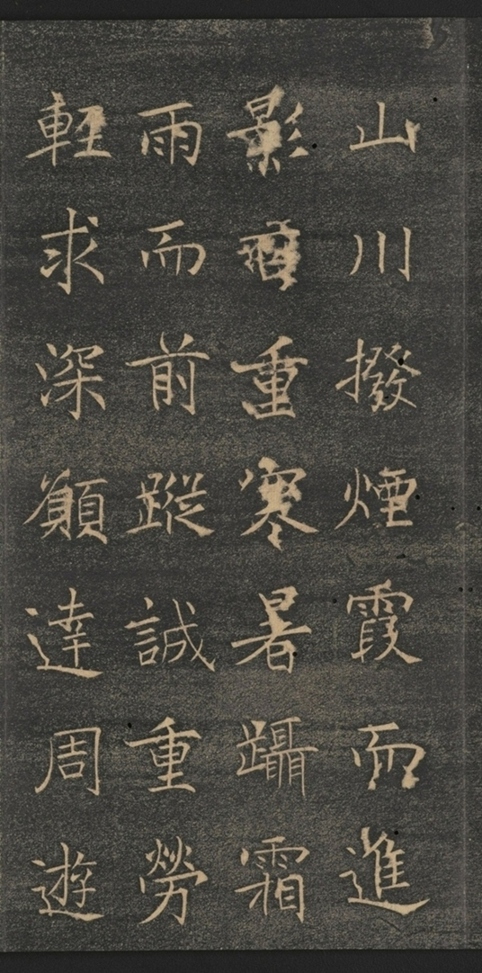 山川撥煙霞而進
影重寒暑躡霜
雨而前蹤誠重勞
輕求深願達周遊